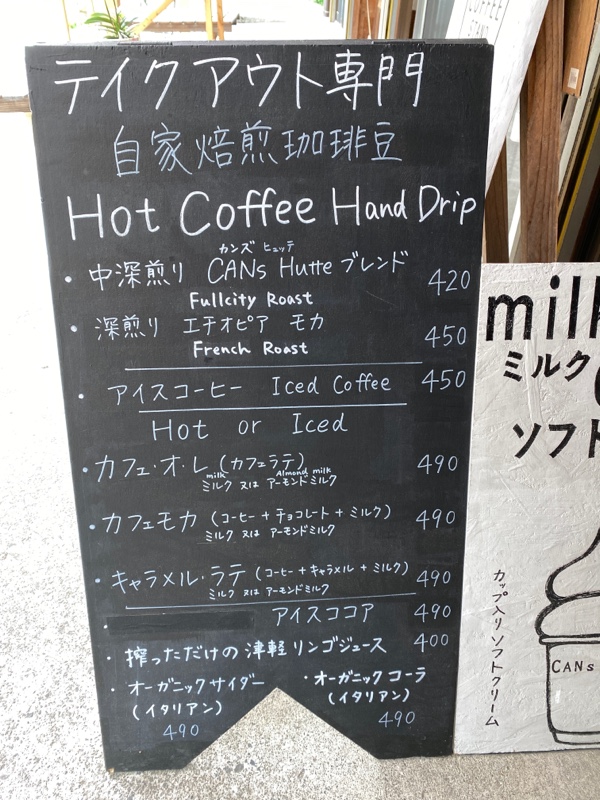 テイクアウト専門
自家焙煎珈琲豆
Hot Coffee Hand Drip
カンズ ヒュッテ
・中深煎り CANs Hutte ブレンド 420
Fullcity Roast
・深煎り エチオピア モカ 450
French Roast
・アイスコーヒー Iced Coffee 450
Hot or Iced
・カフェ・オ・レ (カフェラテ) 490
milk Almond milk
ミルク 又は アーモンドミルク
・カフェモカ (コーヒー + チョコレート + ミルク) 490
ミルク 又は アーモンドミルク
・キャラメル・ラテ (コーヒー + キャラメル + ミルク) 490
ミルク 又は アーモンドミルク
・ アイスココア 490
・搾っただけの津軽リンゴジュース 400
・オーガニックサイダー
(イタリアン)
490
・オーガニックコーラ
(イタリアン)
490
COFFEE
milk
ミルク
ソフト
カップ入りソフトクリーム
CANs